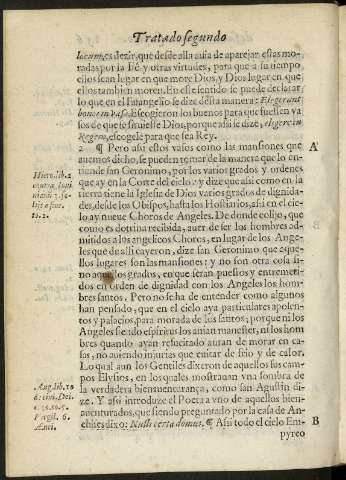 Tratado segundo
locum, es dezir, que desde alla auia de aparejar estas mo-
radas por la Fè y otras virtudes, para que a su tiempo
ellos sean lugar en que more Dios, y Dios lugar en que
ellos tambien moren. En este sentido se puede declarar
lo que en el Euangelio se dize desta manera: Elegerunt
bonos in vasa. Escogieron los buenos para que fuessen va
sos de que se siruiesse Dios, porque assi se dize, elegere in
Regem, escogele para que sea Rey.
2 ¶ Pero assi estos vasos como las mansiones que
auemos dicho, se pueden tomar de la manera que lo en-
tiende san Geronimo, por los varios grados y ordenes
que ay en la Corte del cielo: y dize que assi como en la
tierra tiene la Iglesia de Dios varios grados de dignida-
des, desde los Obispos, hasta los Hostiarios, assi en el cie-
lo ay nueue Choros de Angeles. De donde colijo, que
como es dotrina recibida, auer de ser los hombres ad-
mitidos a los angelicos Choros, en lugar de los Ange-
les que de alli cayeron, dize san Geronimo que aque-
llos lugares son las mansiones: y no son otra cosa si-
no aquellos grados, en que seran puestos y entremeti-
dos en orden de dignidad con los Angeles los hom-
bres santos. Pero no se ha de entender como algunos
han pensado, que en el cielo aya particulares aposen-
tos y palacios, para morada de los santos; porque ni los
Angeles siẽdo espiritus los auian menester, ni los hom
bres quando ayan resucitado auran de morar en ca-
sas, no auiendo injurias que euitar de frio y de calor.
Lo qual aun los Gentiles dixeron de aquellos sus cam-
pos Elysios, en los quales mostrauan vna sombra de
la verdadera bienauenturança, como san Agustin di-
ze. Y assi introduze el Poeta a vno de aquellos bien-
auenturados, que siendo preguntado por la casa de An-
chises dixo: Nulli certa domus. ¶ Assi todo el cielo Em-
pyreo
A
B
Hiero. lib. 2
contra Ioui
to. 2.
Aug. lib. 10
Virgil. 6.